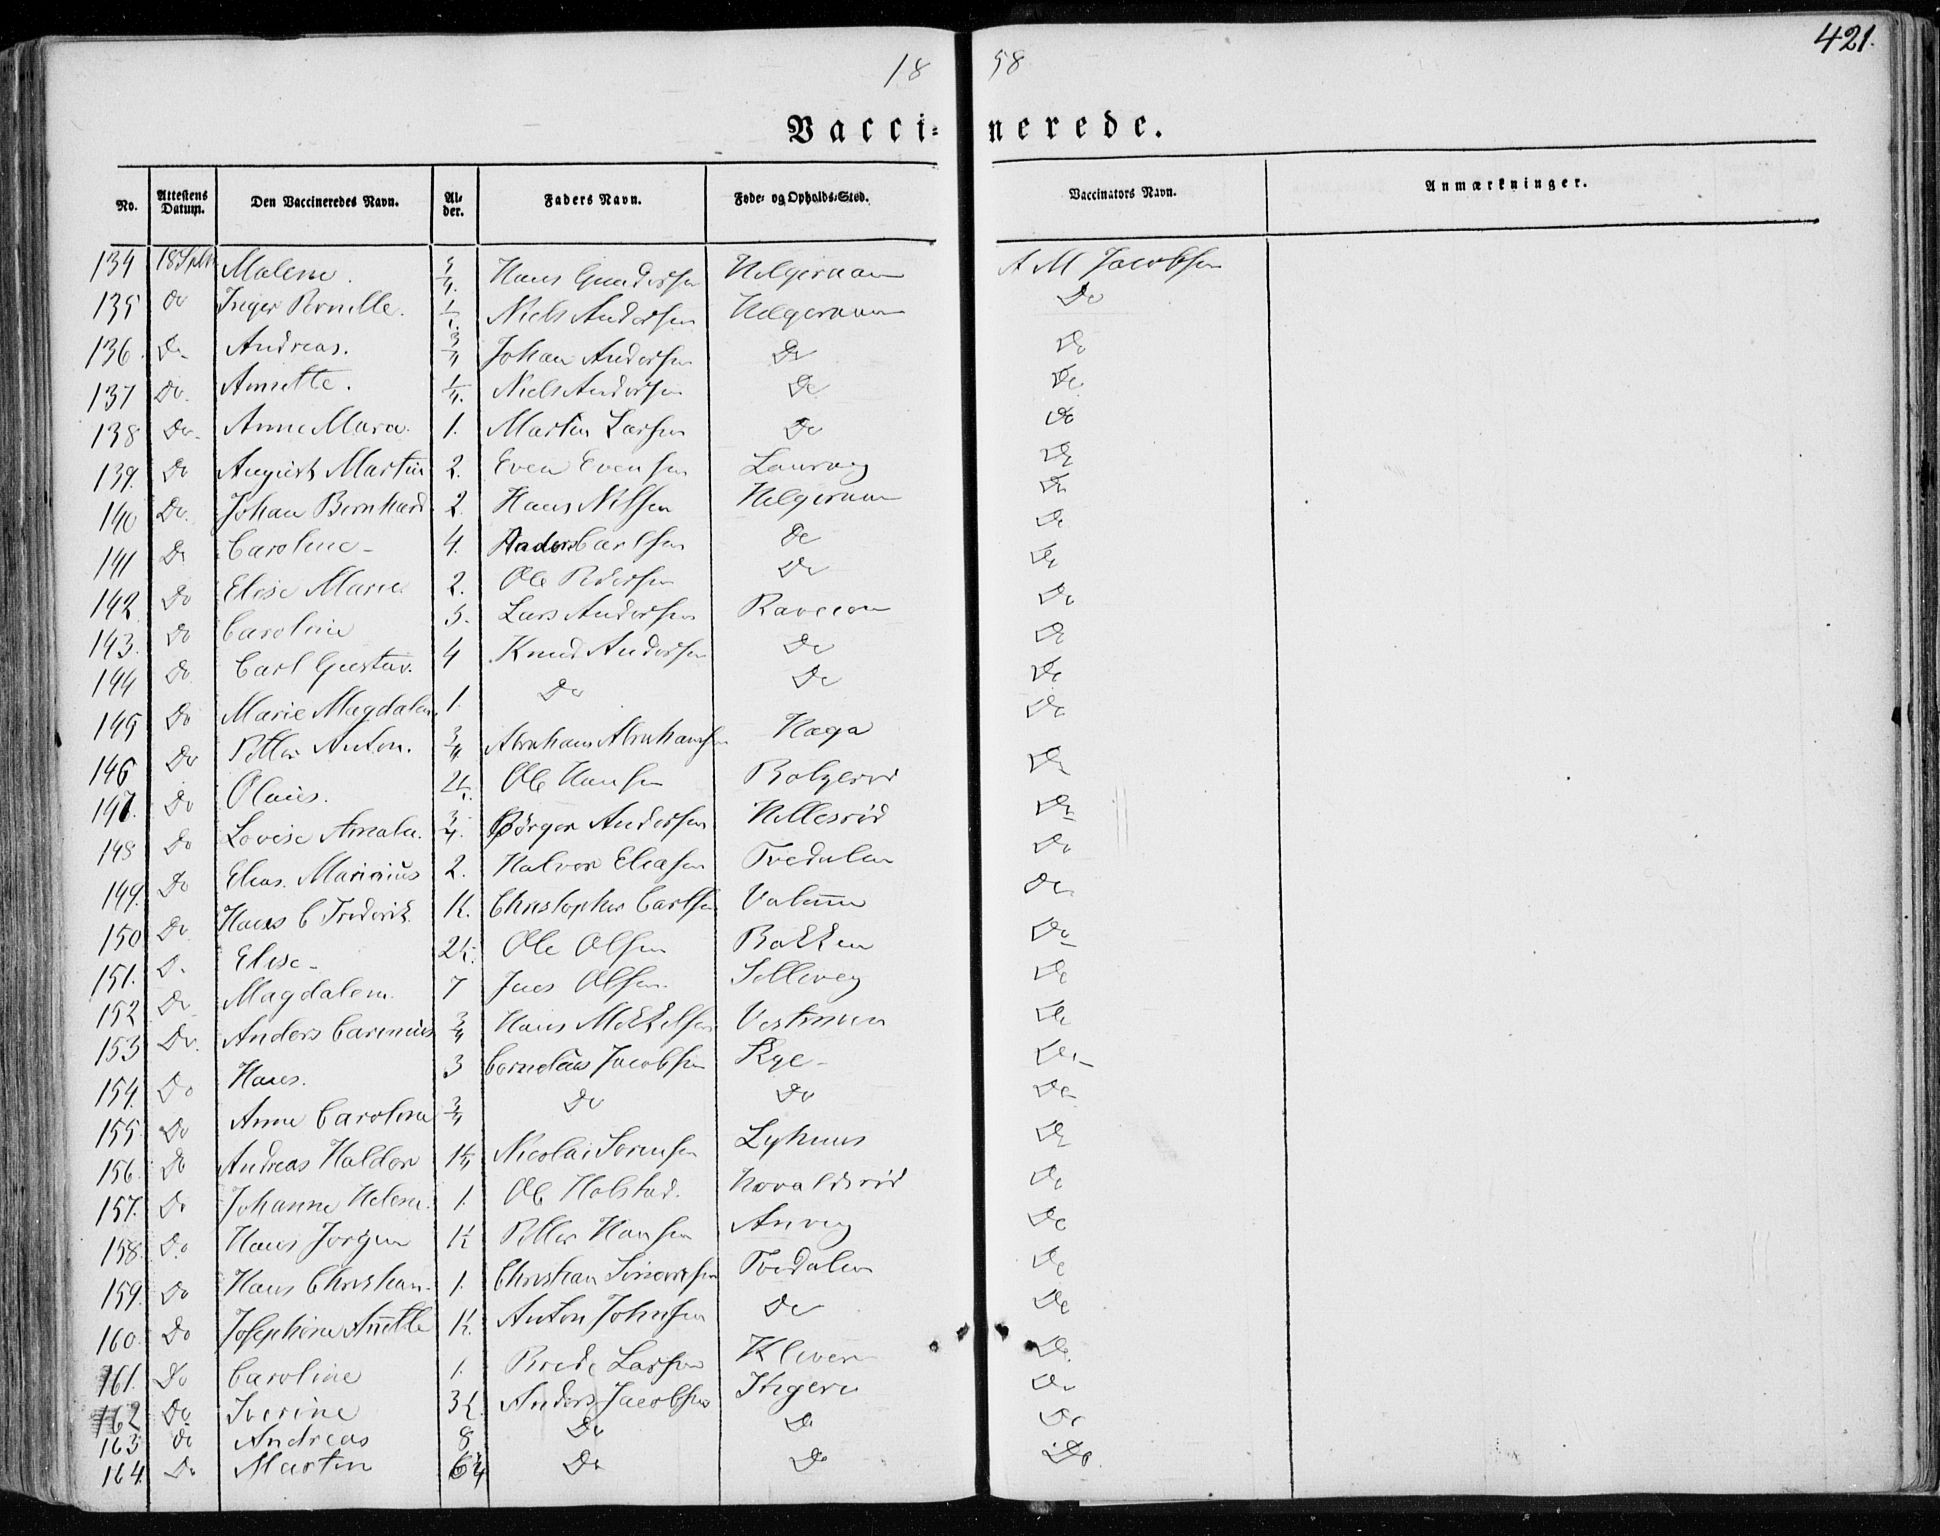 421.
18 58
Vacci= nerede.
No. Attestens Datum. Den Vaccineredes Navn. Al- der. Faders Navn. Føde- og Opholds-Sted. Vaccinators Navn. Anmærkninger.
134 18 Malene. 3/4. Hans Gundersen Helgeraaen A M Jacobsen
135 Do Inger Pernille. Niels Andersen Helgeraaen Do
136. Do Andreas. 3/4 Johan Andersen Do Do
137 Do. Annette. 1/4. Niels Andersen Do Do
138 Do. Anne Marie. 1. Martin Larsen Do Do
139. Do August Martin 2. Even Evensen Laurvig Do
140 Do. Johan Bernhard 2. Hans Nilsen Helgeraaen Do
141 Do Caroline 4. Anders Carlsen Do Do
142 Do Elise Marie 2. Ole Pedersen Do Do
143. Do Caroline 5. Lars Andersen Do
144 Do Carl Gustav. 4 Knud Andersen Do Do
145 Do Marie Magdalene 1. Do Do Do
146 Do Petter Anton. 3/4 Abraham Abrahamsen Haga Do
147. Do Olaus. Ole Hansen Do
148 Do Lovise Amalie. 3/4. Børger Andersen Hillesrød Do
149. Do Elias Marinius 2. Halvor Eliasen Tvedalen Do
150 Do Hans C Frederik 1½. Christopher Carlsen Do
151. Do Elise 2½. Ole Olsen Bakken Do
152 Do Magdalene. 7 Jens Olsen. Do
153 Do. Anders Carinius 3/4 Hans Mikkelsen Do
154. Do Hans. 3 Cornelius Jacobsen Rye Do
155 Do Anne Caroline 3/4 Do Do Do
156. Do Andreas Haldor Nicolai Sørensen Do
157. Do Johanne Helene. 1. Ole Holstad. Do
158 Do Hans Jørgen 1½ Petter Hansen Do
159. Do Hans Christian. 1. Christian Tvedalen Do
160. Do Josephine Anette 1½. Anton Johnsen Do Do
161. Do Caroline 1. Brede Larsen Do
162 Do Iverine 3½. Anders Jacobsen Do
163 Do Andreas 8 Do Do Do
164. Do Martin Do Do Do